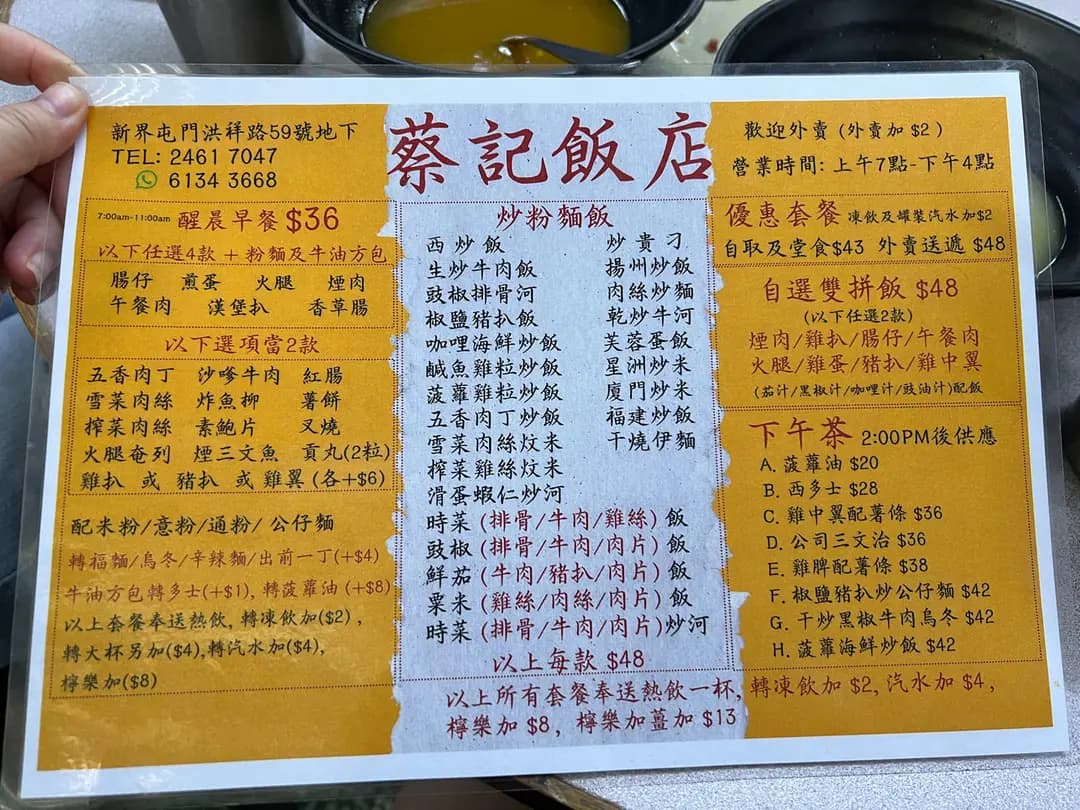 新界屯門洪祥路59號地下
TEL: 2461 7047
6134 3668
蔡記飯店
歡迎外賣 (外賣加 $2 )
營業時間: 上午7點-下午4點
7:00am-11:00am 醒晨早餐 $36
以下任選4款 + 粉麵及牛油方包
腸仔 煎蛋 火腿 煙肉
午餐肉 漢堡扒 香草腸
以下選項當2款
五香肉丁 沙嗲牛肉 紅腸
雪菜肉絲 炸魚柳 薯餅
榨菜肉絲 素鮑片 叉燒
火腿奄列 煙三文魚 貢丸(2粒)
雞扒 或 豬扒 或 雞翼 (各+$6)
配米粉/意粉/通粉/ 公仔麵
轉福麵/烏冬/辛辣麵/出前一丁(+$4)
牛油方包轉多士(+$1), 轉菠蘿油 (+$8)
以上套餐奉送熱飲, 轉凍飲加($2) ,
轉大杯另加($4),轉汽水加($4),
檸樂加($8)
炒粉麵飯
西炒飯 炒貴刁
生炒牛肉飯 揚州炒飯
豉椒排骨河 肉絲炒麵
椒鹽豬扒飯 乾炒牛河
咖哩海鮮炒飯 芙蓉蛋飯
鹹魚雞粒炒飯 星洲炒米
菠蘿雞粒炒飯 廈門炒米
五香肉丁炒飯 福建炒飯
雪菜肉絲炆米 干燒伊麵
榨菜雞絲炆米
滑蛋蝦仁炒河
時菜 (排骨/牛肉/雞絲) 飯
豉椒 (排骨/牛肉/肉片) 飯
鮮茄 (牛肉/豬扒/肉片) 飯
粟米 (雞絲/肉絲/肉片) 飯
時菜 (排骨/牛肉/肉片)炒河
以上每款 $48
優惠套餐 凍飲及罐裝汽水加$2
自取及堂食$43 外賣送遞 $48
自選雙拼飯 $48
(以下任選2款)
煙肉/雞扒/腸仔/午餐肉
火腿/雞蛋/豬扒/雞中翼
(茄汁/黑椒汁/咖哩汁/豉油汁)配飯
下午茶 2:00PM後供應
A. 菠蘿油 $20
B. 西多士 $28
C. 雞中翼配薯條 $36
D. 公司三文治 $36
E. 雞脾配薯條 $38
F. 椒鹽豬扒炒公仔麵 $42
G. 干炒黑椒牛肉烏冬 $42
H. 菠蘿海鮮炒飯 $42
以上所有套餐奉送熱飲一杯, 轉凍飲加 $2, 汽水加 $4 ,
檸樂加 $8 , 檸樂加薑加 $13